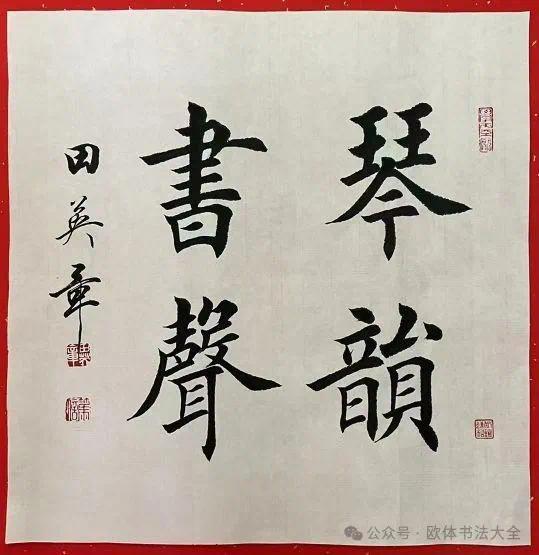 琴韻
書聲
田英章
公众号 · 欧体书法大全